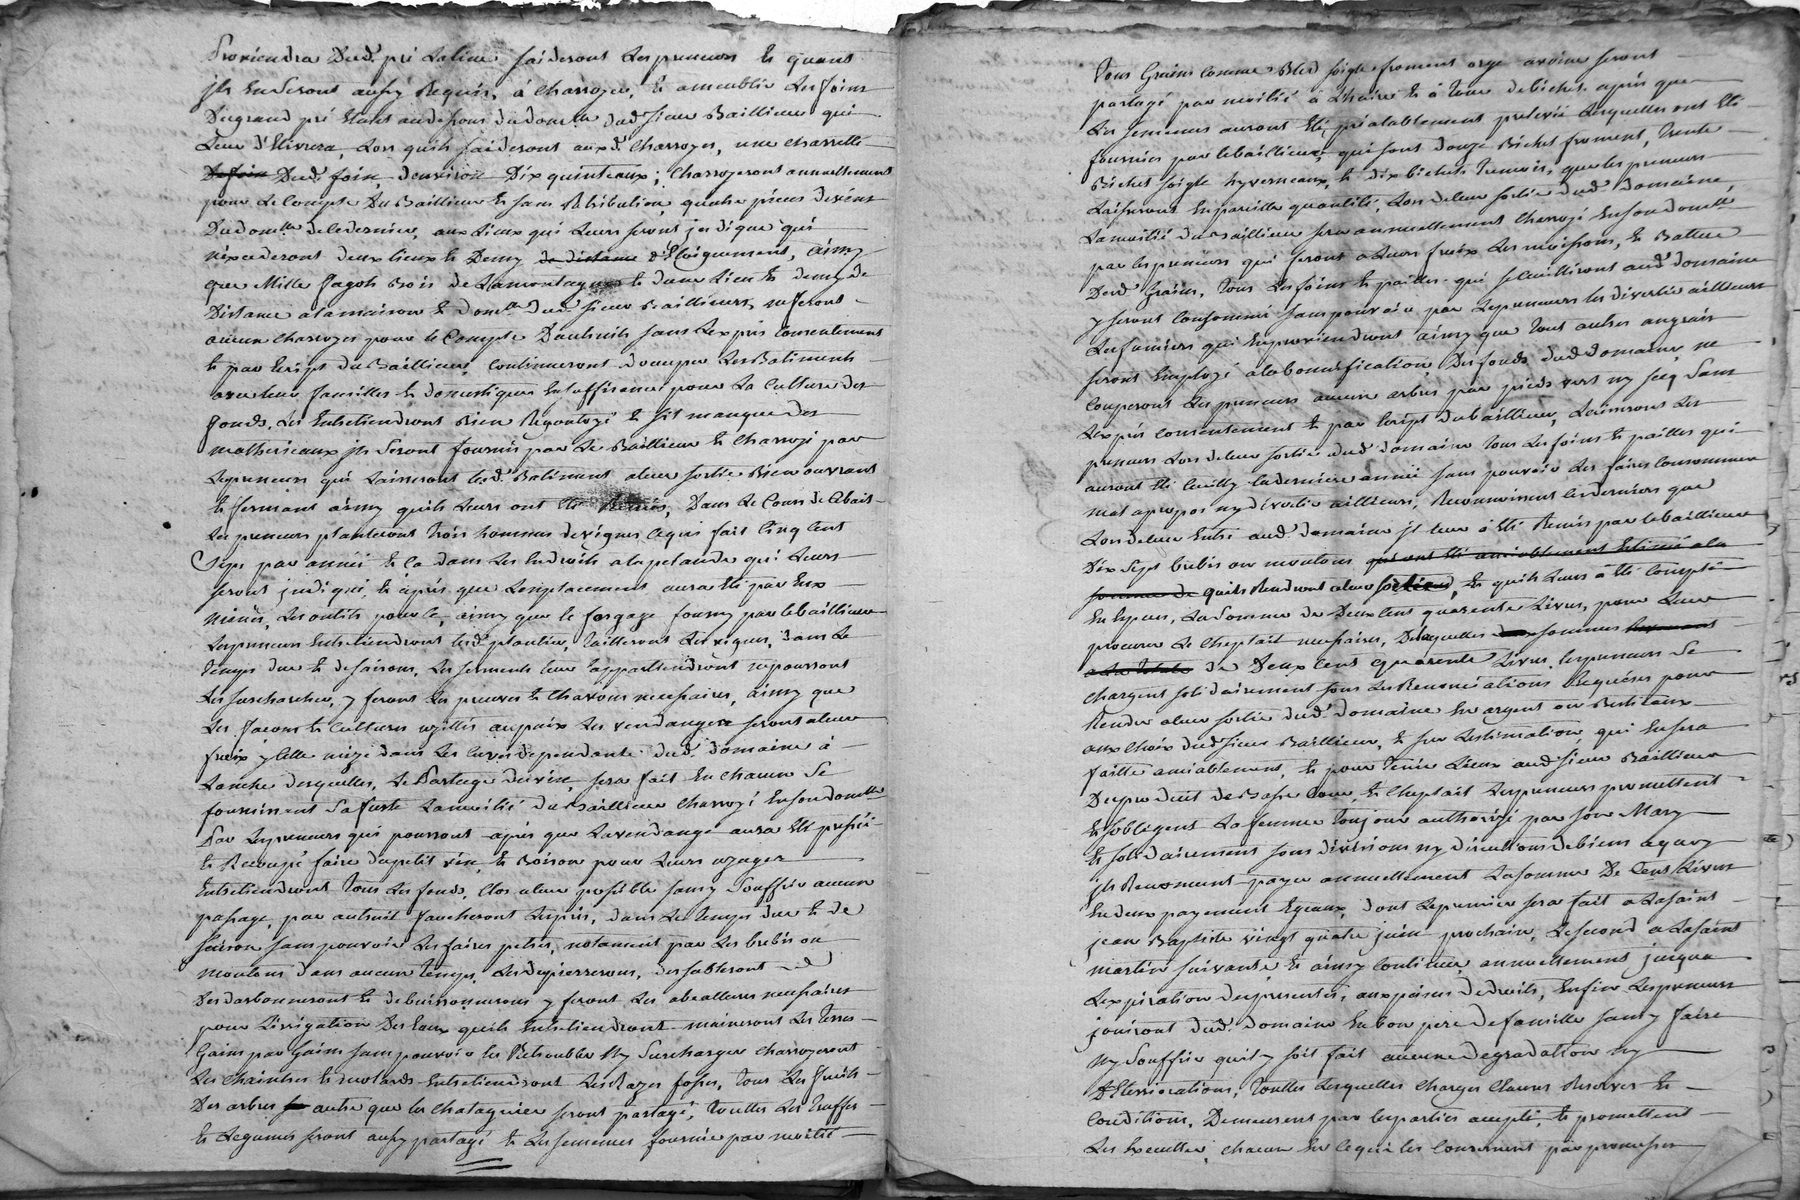 Proviendra Dud. pré Saline faideront les preneurs et quant
jls en Seront aussy Requis, à charroyer, et assembler les foins
Du grand pré Etant au dessous du dom.lle dud Sieur Baillieur qui
Leur d'Elivrera, Lors qu'ils faideront auxd. charroyes, une charrette
Dud. foin, d'environ Dix quinteaux; charroyeront annuellement
pour le Compte Du Baillieur et sans Rétribution, quatre pieces de vin
Du dom.lle de ce dernier, aux Lieux qui Leurs seront jndiqué qui
n'éxcederont deux lieux et Demy d'Eloignement, ainsy
que Mille fagots Bois de La montagne et d'une Lieu et demy de
Distance a la maison et dom.lle dud Sieur Baillieur, ne feront
aucun charroyes pour le Compte D'autruits sans L'exprès consentement
et par Ecript du Baillieur, Continueront d'ocuper Les Batiments
avec leur familles et domestiques En suffisence pour La Culture des
fonds, Les Entretiendront Bien Regoutoyé et s'il manque des
matherieaux jls Seront fournis par Le Baillieur et charroyé par
Les preneurs qui Laisseront lesd. Batiment a leur sortie Bien ouvrant
et fermant ainsy qu'ils Leurs ont Eté Remis, Dans Le Cours de ce bail
Les preneurs planteront trois hommées de vignes ce qui fait Cinq Cent
Ceps par année et ce dans Les Endroits a la pelande qui Leurs
seront jndiqué, et après que L'emplacement aura Eté par Eux
miné, Les outils pour ce, ainsy que le forgage fourny par le baillieur
Les preneurs Entretiendront lesd. plantier, tailleront Les vignes, dans Le
temps due et de saison, Les serments leur apartiendront ne pourront
Les surcharcher, y feront Les preuves et charous necessaires, ainsy que
Les façons et Cultures usittés au païx Les vendanges seront a leur
fraix y Elle mize dans Les Cuves dependante dud. domaine à
L'anche desquelles, Le Partage du vin, sera fait En chacun Se
fournissant Sa futte La moitié du Baillieur charroyé En son dom.lle
Par Les preneurs qui pourront après que La vendange aura Eté pressé
et Recoupé faire du petit vin, et Boison pour Leurs usages
Entretiendront tous Les fonds, Clos a leur possible sans y Souffrir aucun
passage, par autruit faucheront Les prés, dans Le temps due et de
saison sans pouvoir Les faires petrir, notament par Les brebis ou
moutons dans aucun temps, Les depierrerons, des sableront
Des darbonneront et debuissonnerons y feront Les abeallures necessaires
pour L'irrigation Des Eaux qu'ils Entretiendront maineront Les terres
Gains par Gains sans pouvoir les Retroubler Ny Surcharger charroyeront
Les chaintres et mottards Entretiendront Les Razes fosses, tous Les fruits
Des arbres autre que les chataignier seront partagé, touttes Les truffes
et Legumes seront aussy partagé et Les semences fournie par moitié
tous Grains comme Bled soigle froment orge avoine seront
partagé par moitié à L'haire et à Leur de bichet, après que
Les semences auront Eté préalablement prelevée Lesquelles ont Eté
fournies par le baillieur, qui sont douze Bichet froment, trente
Bichet soigle hyverneaux, et dix bichets tremois, que les preneurs
Laisseront En pareille quantité, Lors de leur sortie dud. domaine,
La moitié du Baillieur sera annuellement charroyé En son dom.lle
par les preneurs qui feront a Leurs fraix Les moissons, et Batture
Desd. grains, tous Les foins et pailles qui se Cuilliront aud. domaine
y seront Consommé sans pouvoir par Les preneurs les divertir ailleurs
Les fumiers qui En proviendront ainsy que tout autres angrais
seront Employé a la bonnification Des fonds dud domaine, ne
Couperont Les preneurs aucun arbres par pieds vert ny secq Sans
L'exprès consentement et par Ecript du baillieur, Laisseront Les
preneurs Lors de leur sortie dud. domaine tous Les foins et pailles qui
auront Eté Cuilly La derniere année sans pouvoir Les faires Consommer
mal apropos ny divertir ailleurs, Reconnoissent Les derniers que
Lors de leur Entré aud. domaine jl leur à Eté Remis par le baillieur
Dix Sept brebis ou moutons qui ont Eté amiablement Estimée a la
somme de qu'ils Rendront a leur sortie, et qu'ils Leurs à Eté Compté
En Especes, La Somme de Deux Cent quarente Livres, pour Leur
procurer Le Cheptait necessaires, Desquelles sommes
de Deux Cent quarente Livres, les preneurs Se
Chargent solidairement sous Les Renonciations Requises pour
Rendre a leur sortie dud. domaine En argent ou Bestieaux
aux choix dud sieur Baillieur, et sur L'estimation, qui En sera
faitte amiablement, et pour tenir Lieux aud sieur Baillieur
Du produit de Basse Cour, et Cheptait Les preneurs promettent
Et s'obligent La femme toujour authorisé par son Mary
Et solidairement sous divisions ny discutions de biens a quoy
jls Renoncent payer annuellement La somme De Cent Livres
En deux payement Egeaux, dont Le premier sera fait a La saint
jean Baptiste vingt quatre juin prochain, Le second a La saint
martin suivante et ainsy Continuer annuellement jusqua
L'expiration du presentes, aux peines de droits, Enfin Les preneurs
jouiront dud. domaine En bon pere de famille sans y faire
Ny Souffrir qu'il y soit fait aucune degradation ny
D'eteriorations, touttes Lesquelles charges Clauses Reserves Et
Conditions, Demeurent par les parties accepté, et promettent
Les Executter, chacun En ce qui les Concernent par promesses